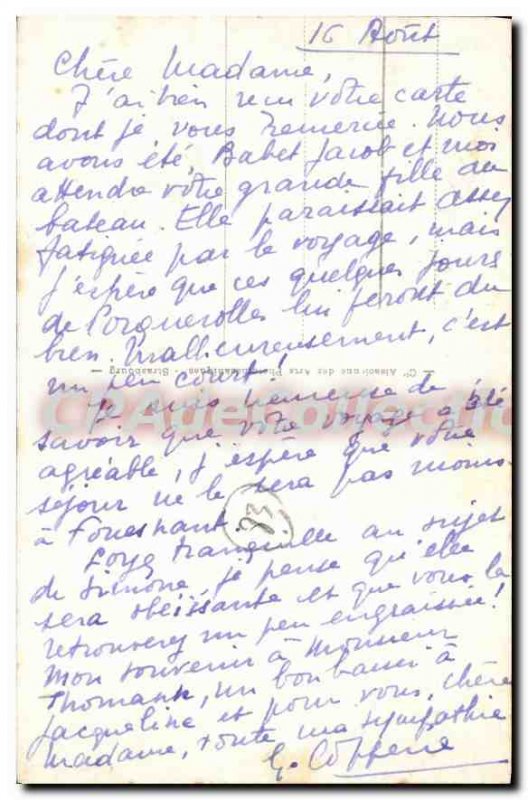 16 Août
Chère Madame,
J'ai bien reçu votre carte
dont je vous remercie. Nous
avons été, Babet Jacob et moi
attendre votre grande fille au
bateau. Elle paraissait assez
fatiguée par le voyage, mais
j'espère que ces quelques jours
de Porquerolles lui feront du
bien. Malheureusement, c'est
un peu court!
Je suis heureuse de
savoir que votre voyage a été
agréable, j'espère que votre
séjour ne le sera pas moins
à Fouesnant.
Soyez tranquille au sujet
de Simone, je pense qu'elle
sera obéissante et que vous la
retrouverez un peu engraissée!
Mon souvenir à Monsieur
Thomann, un bon baiser à
Jacqueline et pour vous, chère
Madame, toute ma sympathie
G.
Cie Alsacienne des Arts Photomécaniques - Strasbourg
83
CPA de Collection